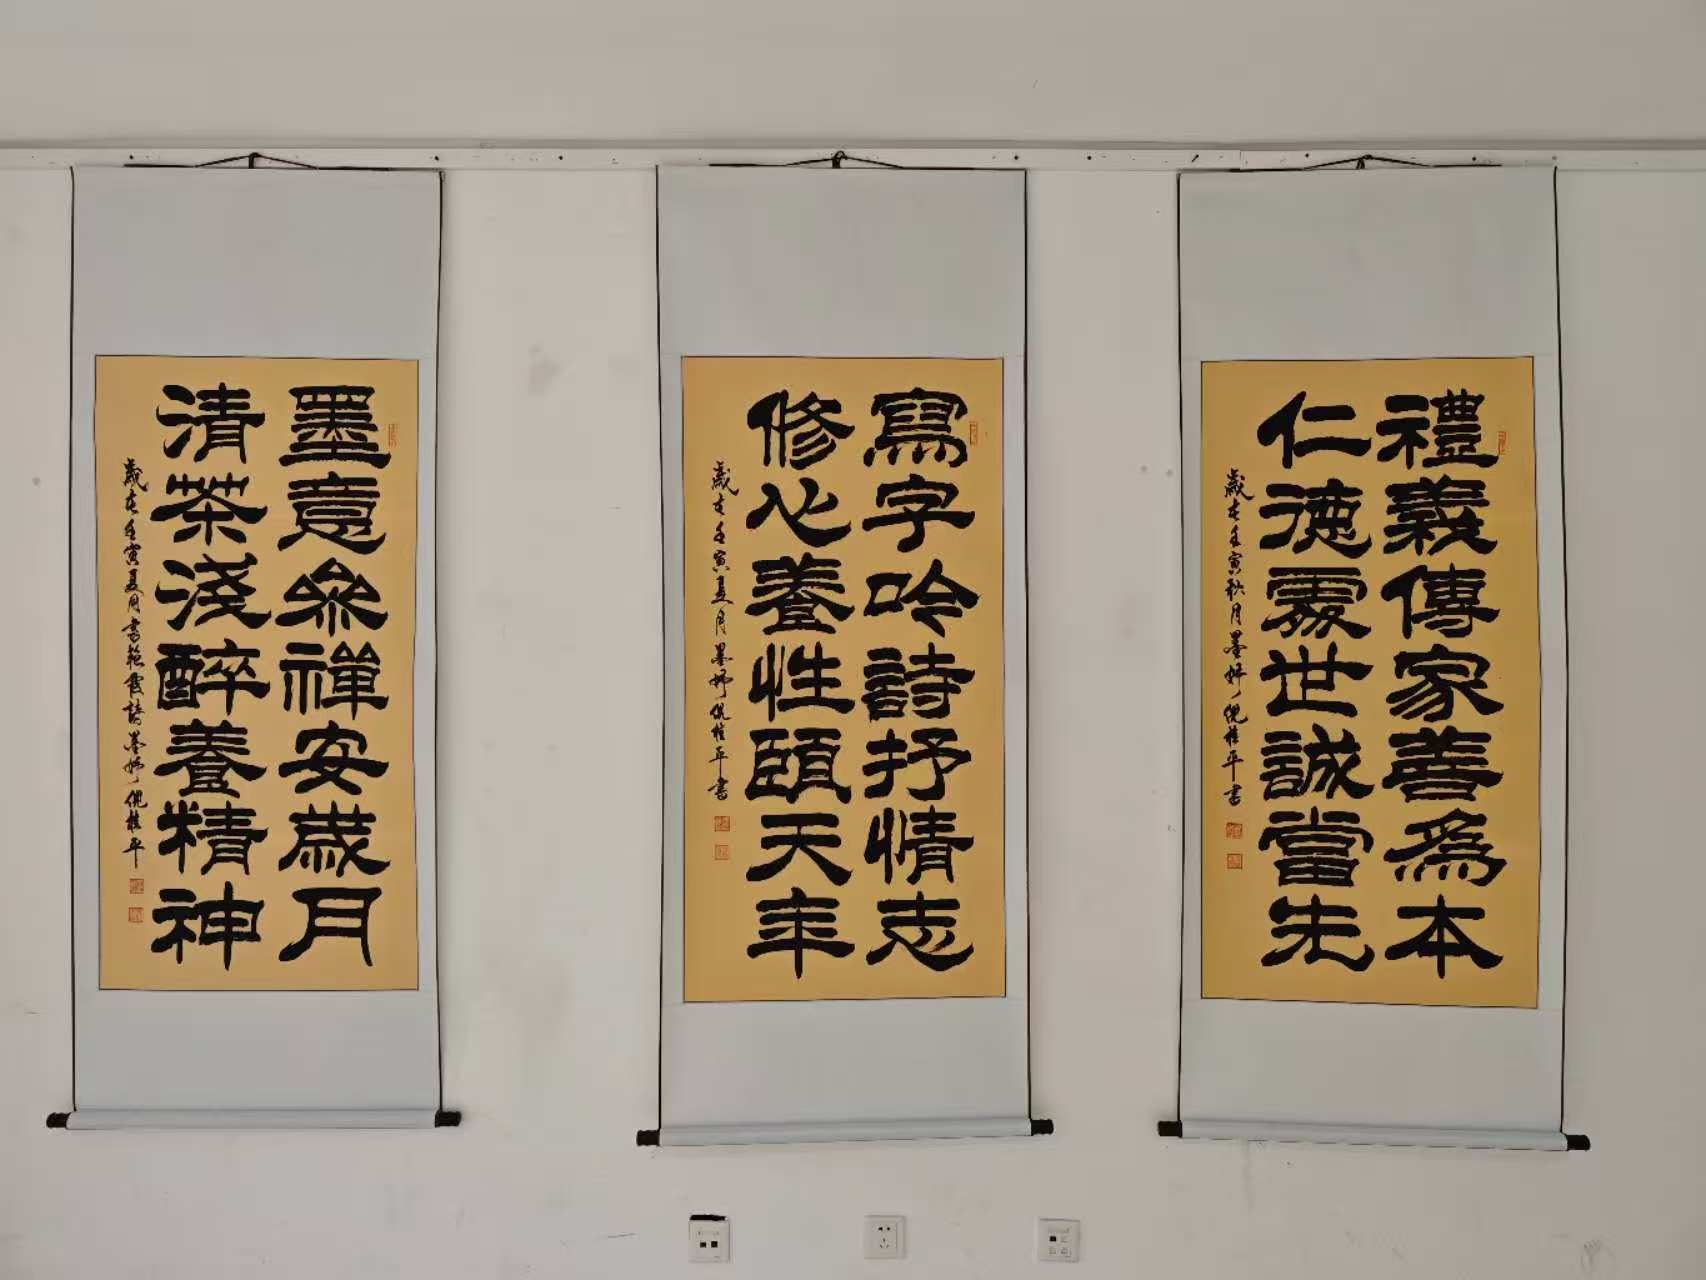 禮義傳家善為本
仁德處世誠當先
歲在壬寅秋月墨婷倪桂平書
寫字吟詩抒情志
修心養性頤天年
歲在壬寅夏月墨婷倪桂平書
墨意參禪安歲月
清茶淺醉養精神
歲在壬寅夏月書範震詩墨婷倪桂平